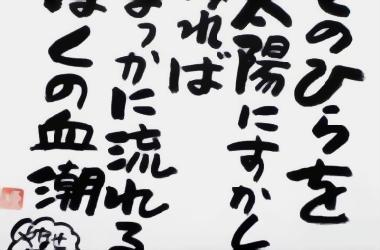 てのひらを
太陽にすかし
みれば
まっかに流れる
ぼくの血潮